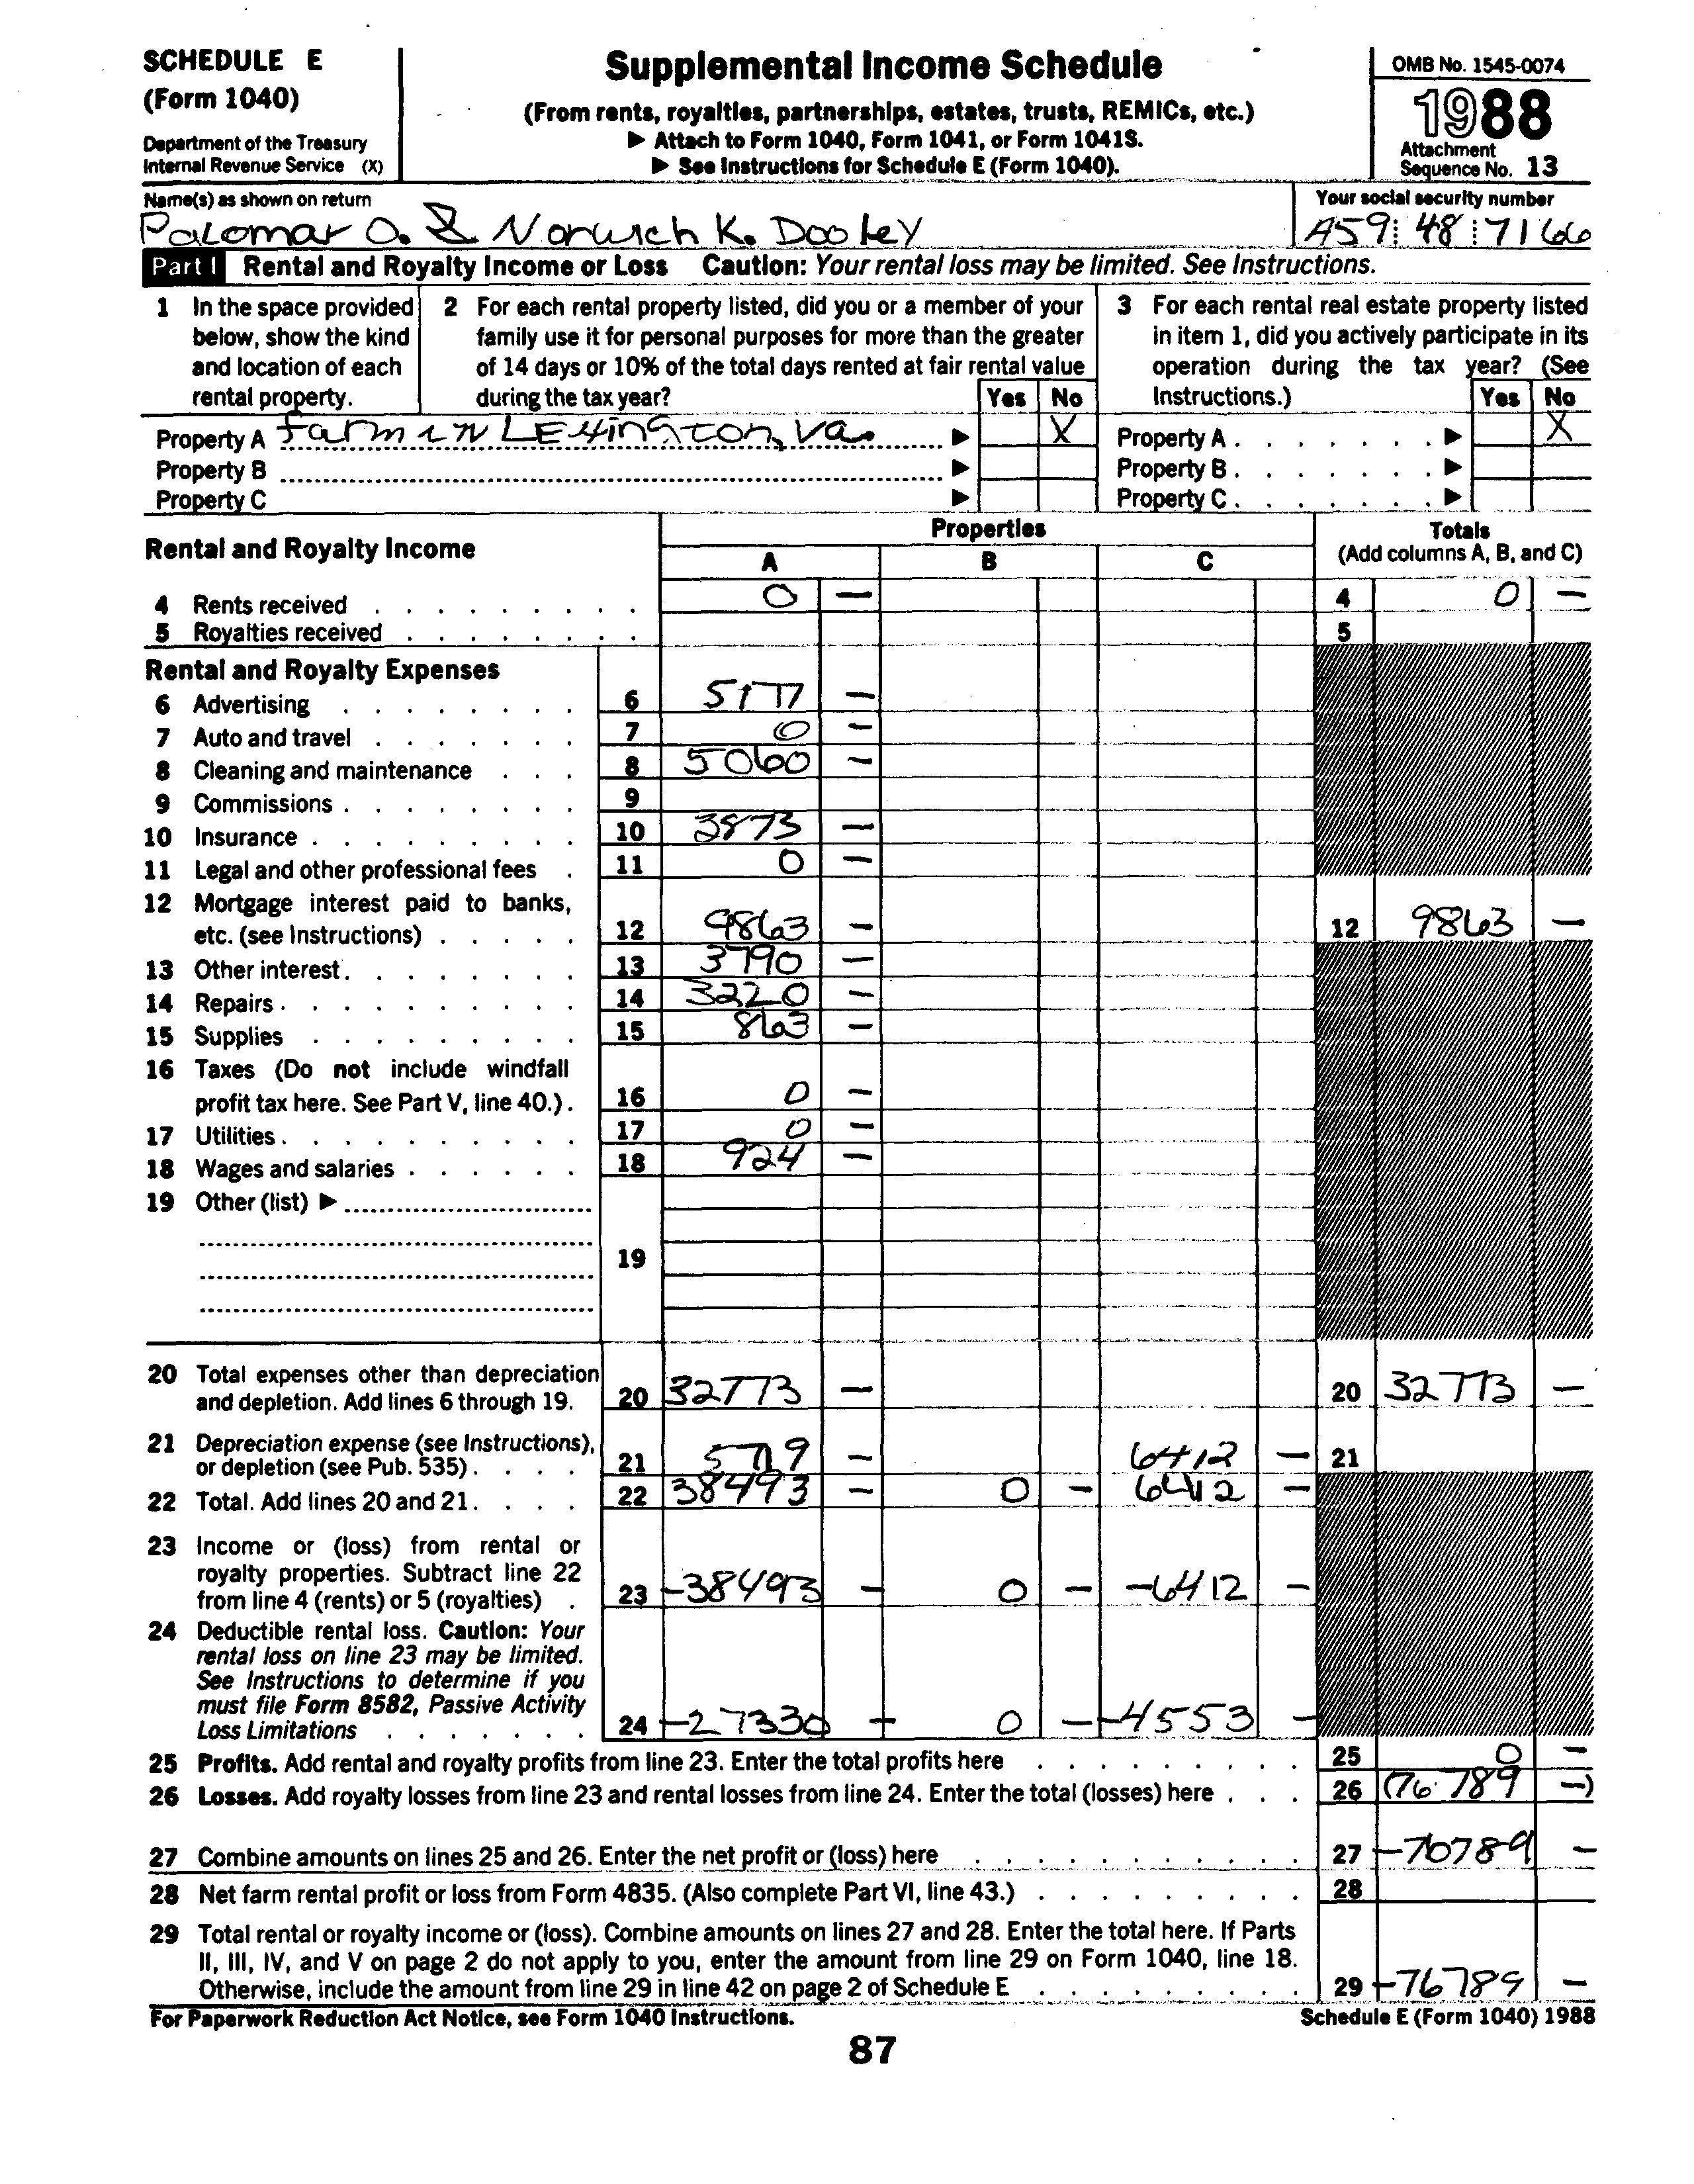 SCHEDULE E
(Form 1040)
Department of the Treasury
Internal Revenue Service (X)
Supplemental Income Schedule
(From rents, royalties, partnerships, estates, trusts, REMICs, etc.)
▶ Attach to Form 1040, Form 1041, or Form 1041S.
▶ See Instructions for Schedule E (Form 1040).
OMB No. 1545-0074
1988
Attachment
Sequence No. 13
Name(s) as shown on return
Palomar O. & Norwich K. Dooley
Your social security number
A59 48 7166
Part I Rental and Royalty Income or Loss Caution: Your rental loss may be limited. See Instructions.
1 In the space provided
below, show the kind
and location of each
rental property.
2 For each rental property listed, did you or a member of your
family use it for personal purposes for more than the greater
of 14 days or 10% of the total days rented at fair rental value
during the tax year? Yes No
3 For each rental real estate property listed
in item 1, did you actively participate in its
operation during the tax year? (See
Instructions.) Yes No
Property A Farm in Lexington, Va. ▶ X Property A ▶ X
Property B ▶ Property B ▶
Property C ▶ Property C ▶
Rental and Royalty Income
Properties
A B C
Totals
(Add columns A, B, and C)
4 Rents received 0 — 4 0 —
5 Royalties received 5
Rental and Royalty Expenses
6 Advertising 6 5177 —
7 Auto and travel 7 0 —
8 Cleaning and maintenance 8 5060 —
9 Commissions 9
10 Insurance 10 3873 —
11 Legal and other professional fees 11 0 —
12 Mortgage interest paid to banks,
etc. (see Instructions) 12 9863 — 12 9863 —
13 Other interest 13 3790 —
14 Repairs 14 3220 —
15 Supplies 15 863 —
16 Taxes (Do not include windfall
profit tax here. See Part V, line 40.) 16 0 —
17 Utilities 17 0 —
18 Wages and salaries 18 924 —
19 Other (list) ▶
19
20 Total expenses other than depreciation
and depletion. Add lines 6 through 19. 20 32773 — 20 32773 —
21 Depreciation expense (see Instructions),
or depletion (see Pub. 535) 21 5719 — 6412 — 21
22 Total. Add lines 20 and 21 22 38493 — 0 — 6412 —
23 Income or (loss) from rental or
royalty properties. Subtract line 22
from line 4 (rents) or 5 (royalties) 23 -38493 — 0 — -6412 —
24 Deductible rental loss. Caution: Your
rental loss on line 23 may be limited.
See Instructions to determine if you
must file Form 8582, Passive Activity
Loss Limitations 24 -27330 — 0 — -4553 —
25 Profits. Add rental and royalty profits from line 23. Enter the total profits here 25 0 —
26 Losses. Add royalty losses from line 23 and rental losses from line 24. Enter the total (losses) here 26 (76789 —)
27 Combine amounts on lines 25 and 26. Enter the net profit or (loss) here 27 -76789 —
28 Net farm rental profit or loss from Form 4835. (Also complete Part VI, line 43.) 28
29 Total rental or royalty income or (loss). Combine amounts on lines 27 and 28. Enter the total here. If Parts
II, III, IV, and V on page 2 do not apply to you, enter the amount from line 29 on Form 1040, line 18.
Otherwise, include the amount from line 29 in line 42 on page 2 of Schedule E 29 -76789 —
For Paperwork Reduction Act Notice, see Form 1040 Instructions. Schedule E (Form 1040) 1988
87